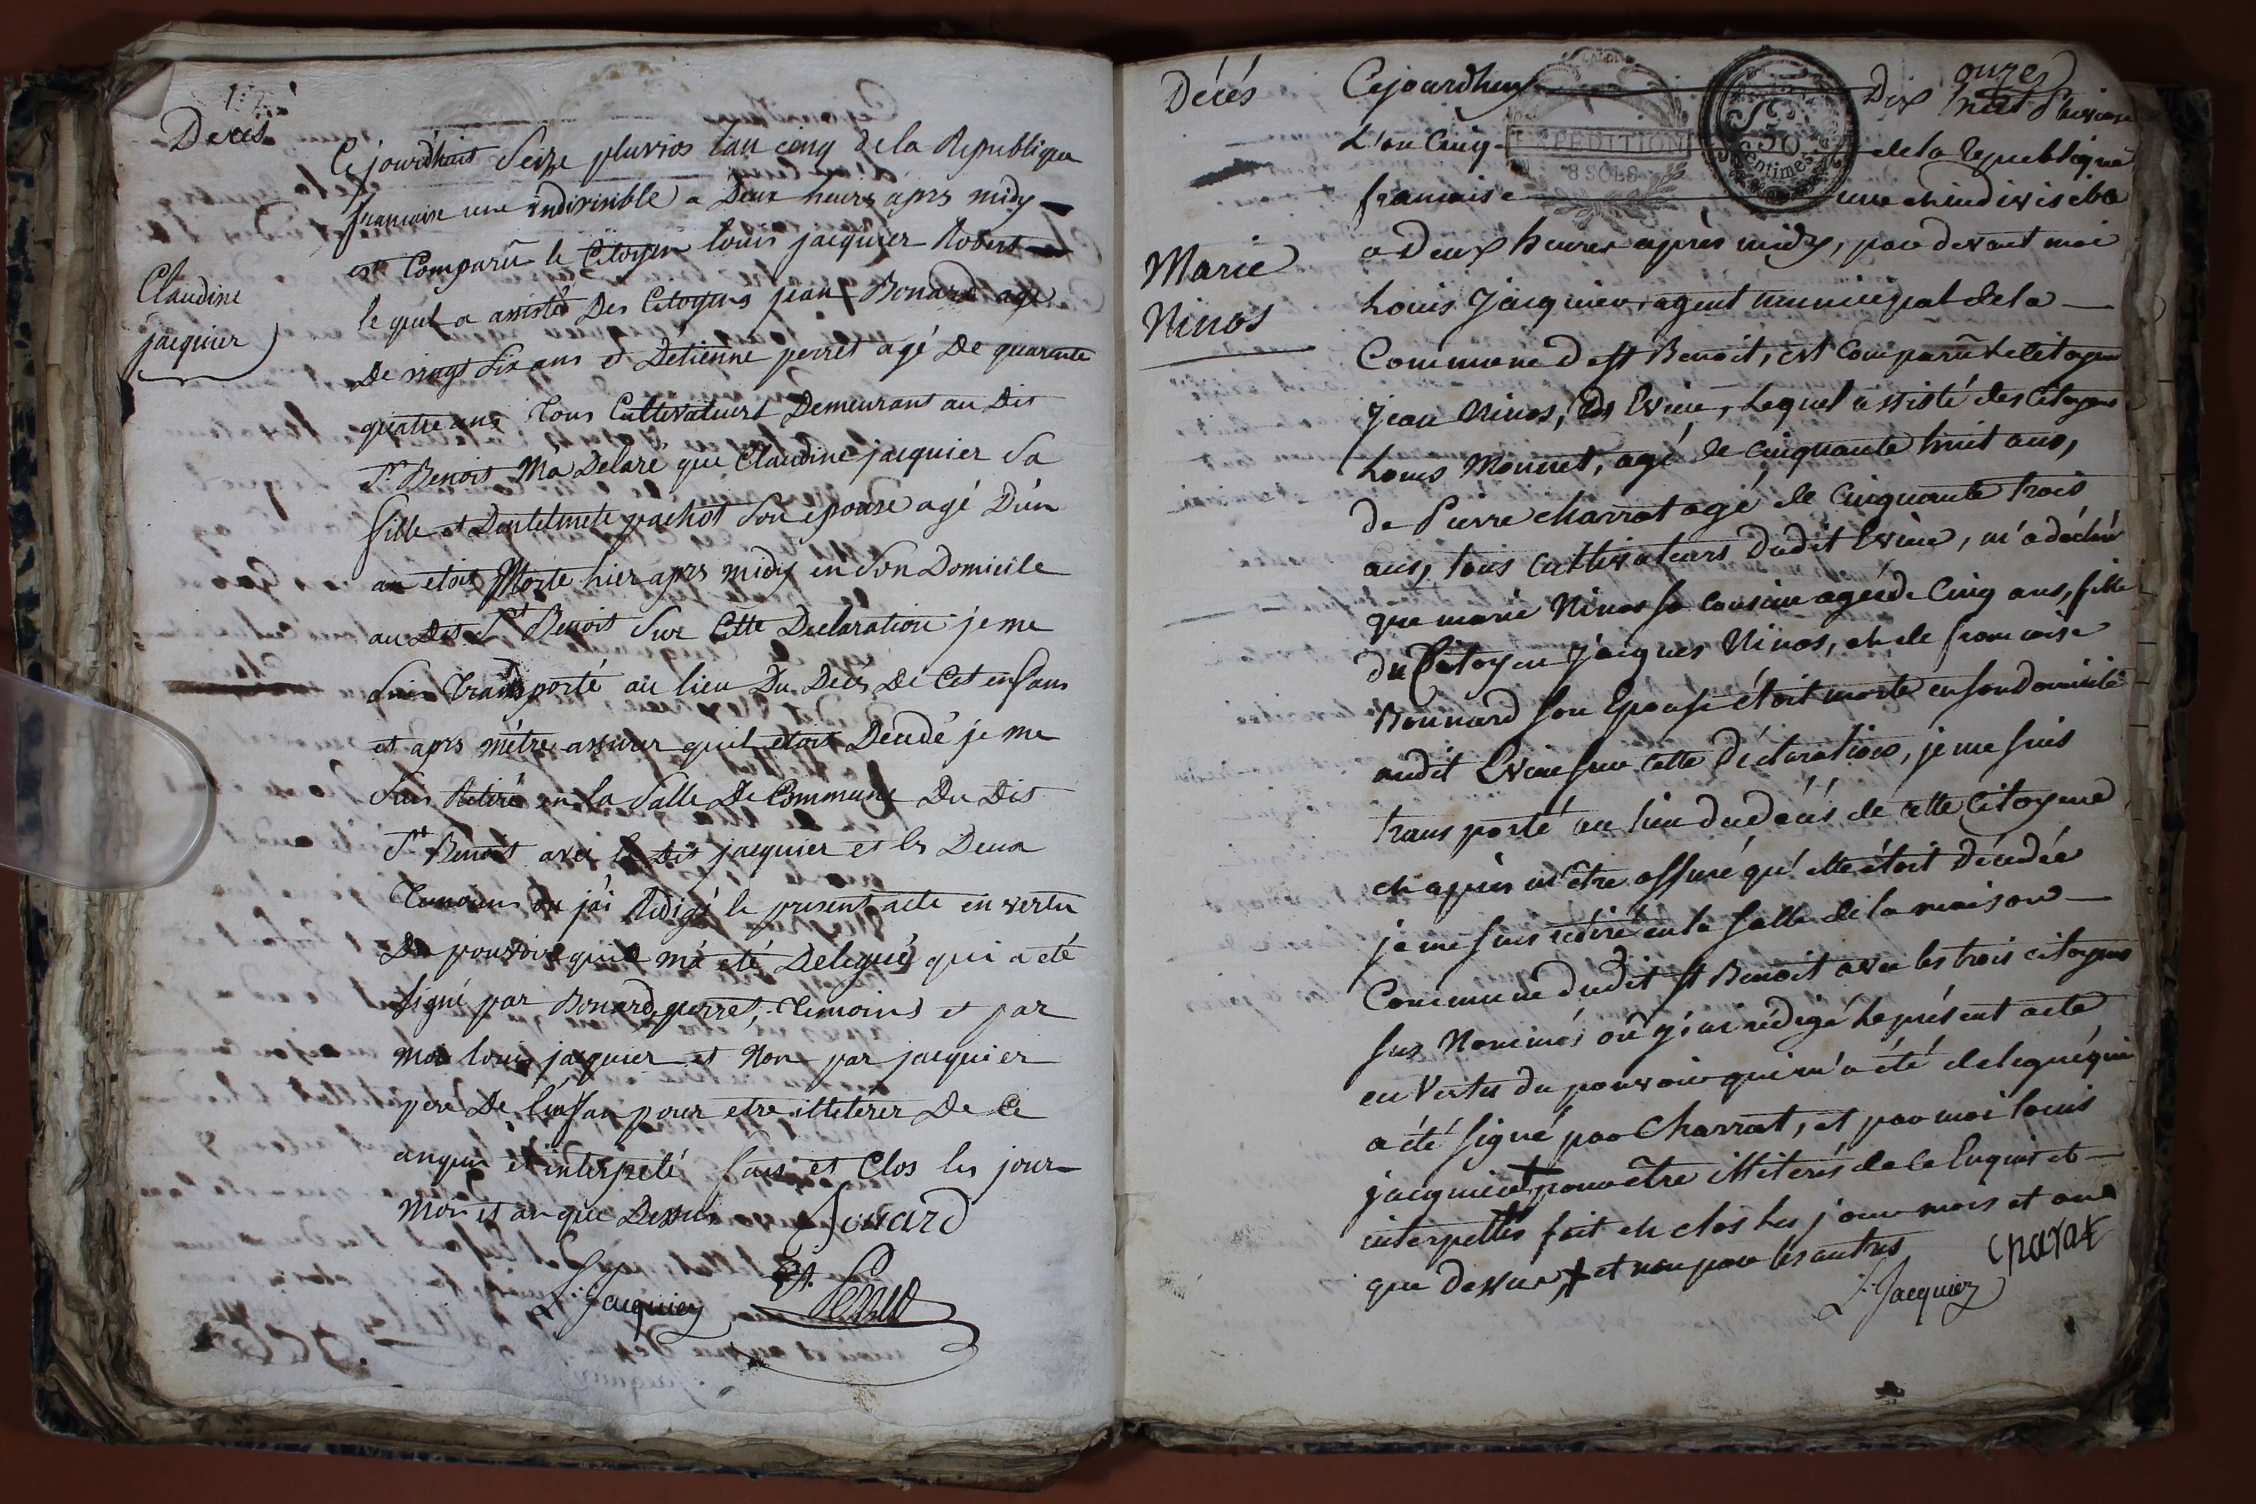 Decés
Claudine
jacquier
Cejourdhuit Seize pluvios lan cinq de la Republique
francaise une indivisible a Deux heures aprs midy
est Comparû le Citoyen louis jacquier Robert
le quel a assisté Des Citoyens jean Bonard agé
De vingt six ans et Detienne perret agé De quarente
quatre ans Tous Cultivateurs Demeurant au Dit
St Benoit Ma Delaré que Claudine jacquier Sa
fille et pachot Son epouse agé Dún
an etoit Morte hier aprs midy en Son Domicile
au Dit St Benoit Sur Cette Declaration je me
Suis Transporté au lieu Du Deces De Cet enfant
et aprs métre assurer quil etoit Deudé je me
Suis Retiré en la Salle De Commune Du Dit
St Benoit avec le Dit jacquier et les Deux
Temoins ou jái Redigé le present acte en vertu
Du pouvoir quil má eté Delegué qui a eté
Signé par Bonard, perret, Temoins et par
Moi louis jacquier et Non par jacquier
pere De lenfan pour etre illiterer De Ce
anquis et interpeté fait et Clos les jour
Mois et an que Dessus
Bonard
L. Jacquier
Et. Perret
Décés
Marie
Ninos
EXPEDITION
8 SOLS
50
Centimes
Cejourdhuy Dix onze Pluviose
L'an Cinq de la Republique
francaise une et indivisible
a Deux heures après midy, par devant moi
Louis Jacquier, agent municipal de la
Commune de St Benoit, est Comparû le Citoyen
Jean Ninos, Evieu, Lequel assisté des Citoyens
Louis Monnet, agé de Cinquante huit ans,
de Pierre charrat agé de Cinquante trois
ans, tous Cultivateurs dudit Evieu, m'a déclaré
que marie Ninos sa cousine agée de Cinq ans, fille
du Citoyen Jacques Ninos, et de francoise
Bonnard son Epouse étoit morte en son Domicile
audit Evieu sur cette Déclaration, je me suis
transporté au lieu du décés de cette Citoyene
et après m'être assuré qu'elle étoit décédée
je me suis rétiré en la salle de la maison
Commune dudit St Benoit avec les trois citoyens
sus Nommés où j'ai rédigé Le présent acte
en Vertu du pouvoir qui m'a été delegué qui
a été signé par Charrat, et par moi louis
jacquier + pour être illiterés de ce Enquis et
interpellés fait et clos les jour mois et an
que dessus + et non par les autres
charat
L. Jacquier